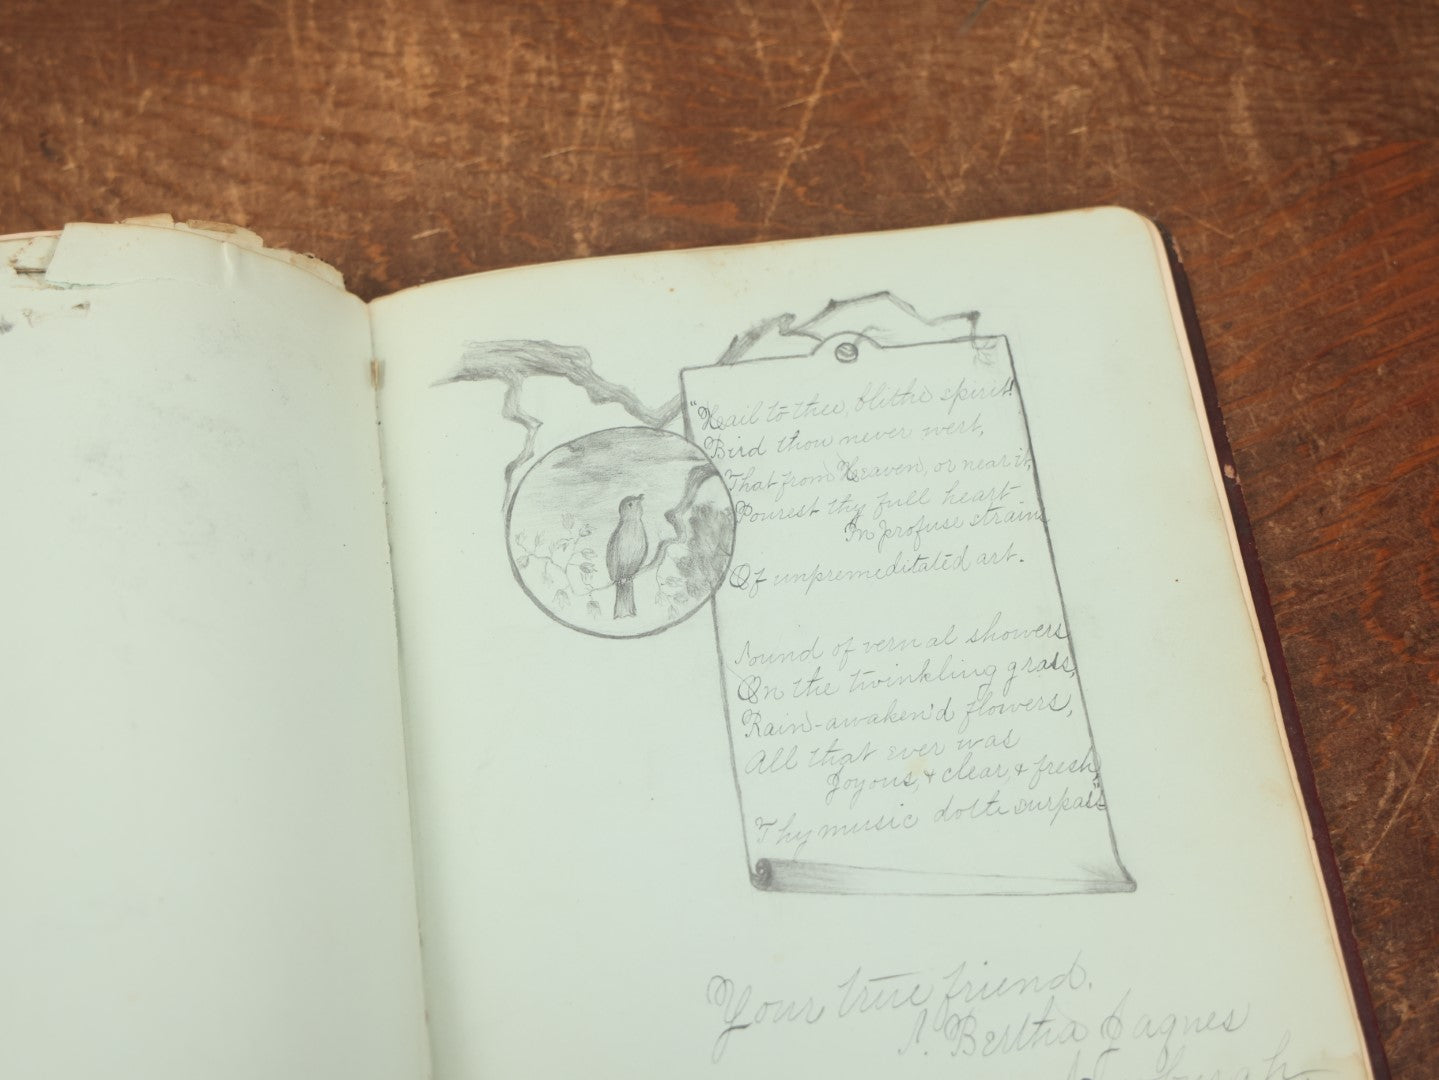 "Hail to thee, blithe spirit!
Bird thou never wert,
That from Heaven, or near it,
Pourest thy full heart
In profuse strains
Of unpremeditated art.
Sound of vernal showers
On the twinkling grass,
Rain-awaken'd flowers,
All that ever was
Joyous, & clear, & fresh,
Thy music doth surpass"
Your true friend.
Bertha